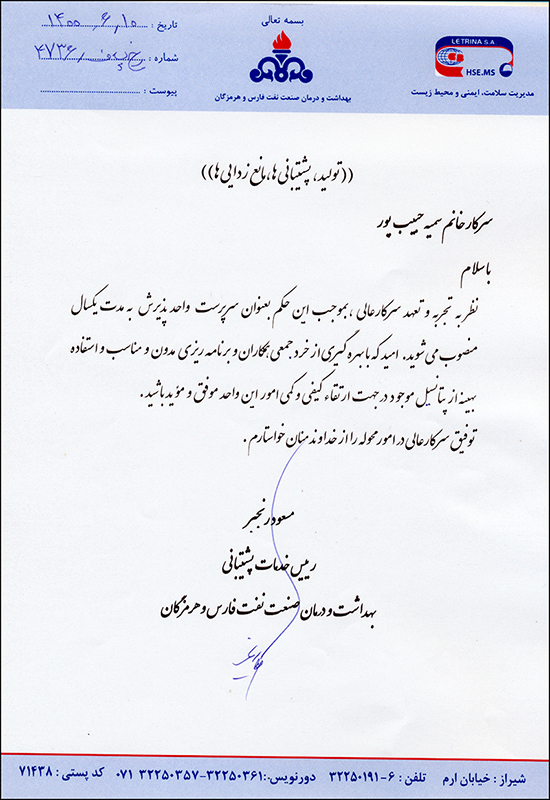 بسمه تعالی
LETRINA S.A
HSE.MS
مدیریت سلامت، ایمنی و محیط زیست
بهداشت و درمان صنعت نفت فارس و هرمزگان
تاریخ : ۱۴۰۰/۶/۱۰
شماره : ۴۷۳۶
پیوست :
((تولید، پشتیبانی ها، مانع زدایی ها))
سرکار خانم سمیه حبیب پور
با سلام
نظر به تجربه و تعهد سرکارعالی ، بموجب این حکم بعنوان سرپرست واحد پذیرش به مدت یکسال
منصوب می شوید. امید که با بهره گیری از خرد جمعی همکاران و برنامه ریزی مدون و مناسب و استفاده
بهینه از پتانسیل موجود در جهت ارتقاء کیفی و کمی امور این واحد موفق و مؤید باشید .
توفیق سرکارعالی در امور محوله را از خداوند منان خواستارم .
مسعود رنجبر
رییس خدمات پشتیبانی
بهداشت و درمان صنعت نفت فارس و هرمزگان
شیراز : خیابان ارم تلفن : ۶-۳۲۲۵۰۱۹۱ دورنویس: ۳۲۲۵۰۳۶۱-۳۲۲۵۰۳۵۷ ۰۷۱ کد پستی : ۷۱۴۳۸